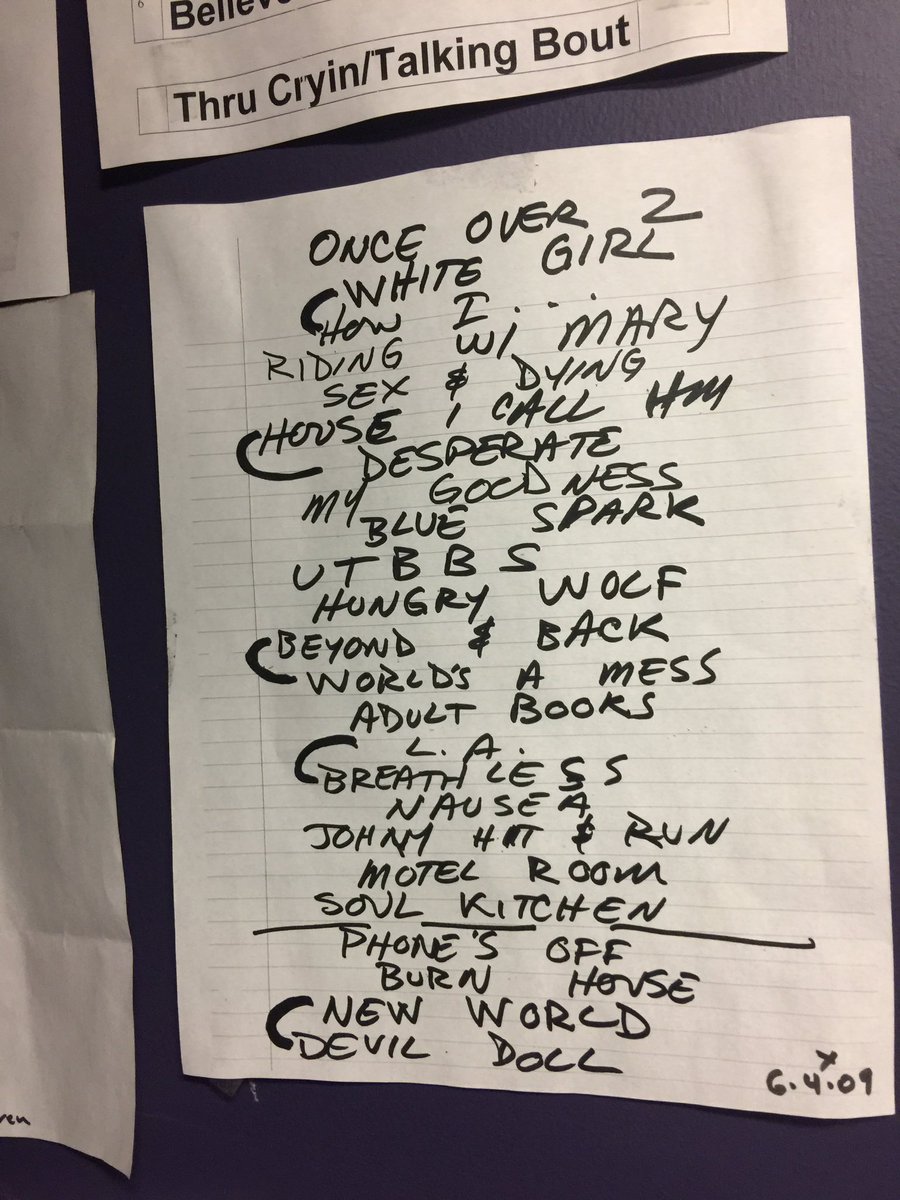 6
Believe
Thru Cryin/Talking Bout
ONCE OVER 2
WHITE GIRL
HOW I....
RIDING W/ MARY
SEX & DYING
HOUSE I CALL HM
DESPERATE
MY GOODNESS
BLUE SPARK
UTBBS
HUNGRY WOLF
BEYOND & BACK
WORLD'S A MESS
ADULT BOOKS
L.A.
BREATHLESS
NAUSEA
JOHNY HIT & RUN
MOTEL ROOM
SOUL KITCHEN
PHONE'S OFF
BURN HOUSE
NEW WORLD
DEVIL DOLL
X
6.4.09